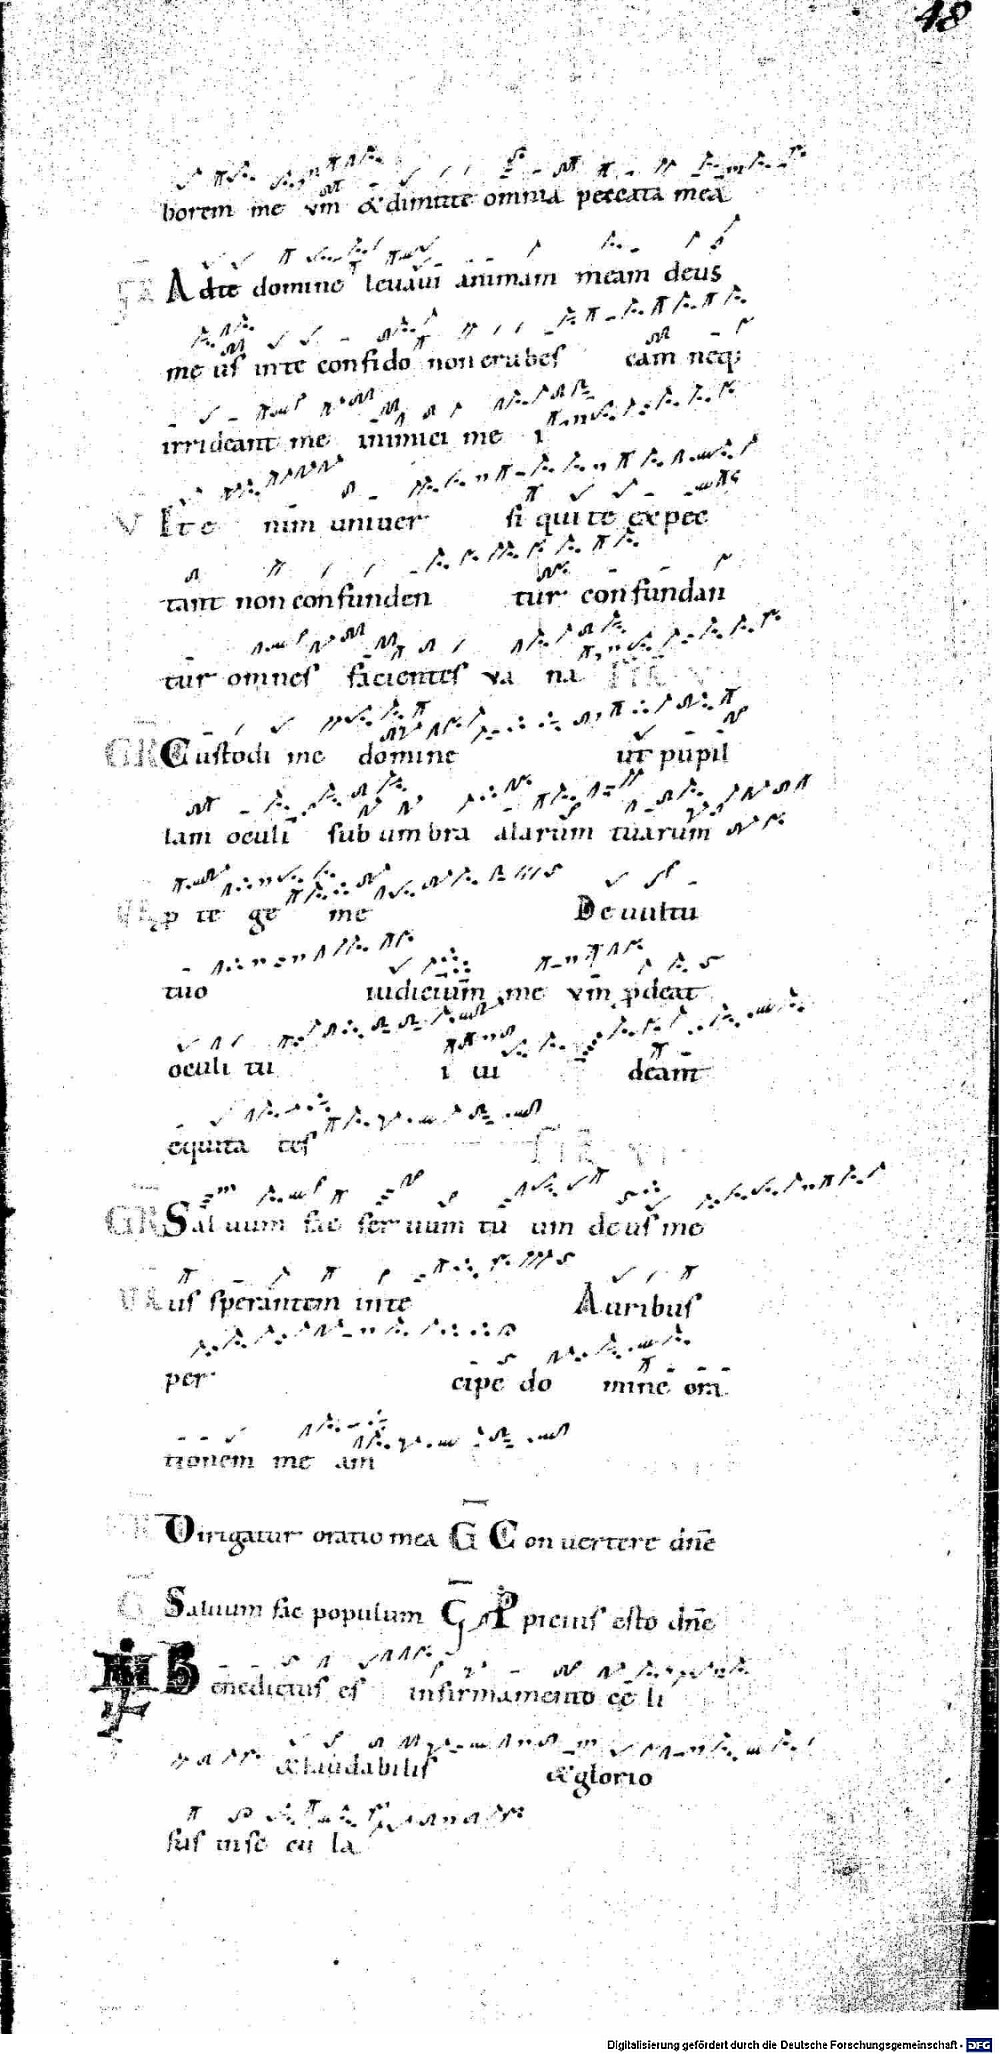 48
borem me um & dimitte omnia peccata mea
GR Ad te domine levavi animam meam deus
me us in te confido non erubes cam neq;
irrideant me inimici me i
V Et e nim univer si qui te expec
tant non confunden tur confundan
tur omnes facientes va na
GR Custodi me domine ut pupil
lam oculi sub umbra alarum tuarum
p te ge me De vultu
tuo iudicium me um pdeat
oculi tu i ui deam
equita tes
GR Sal uum fac ser uum tu um deus me
us sperantem in te Auribus
per cipe do mine ora
tionem me am
GR Dirigatur oratio mea G Con uertere dñe
G Saluum fac populum G Rpicius esto dñe
Benedictus es in firmamento cę li
& laudabilis & glorio
sus in sę cu la
Digitalisierung gefördert durch die Deutsche Forschungsgemeinschaft - DFG